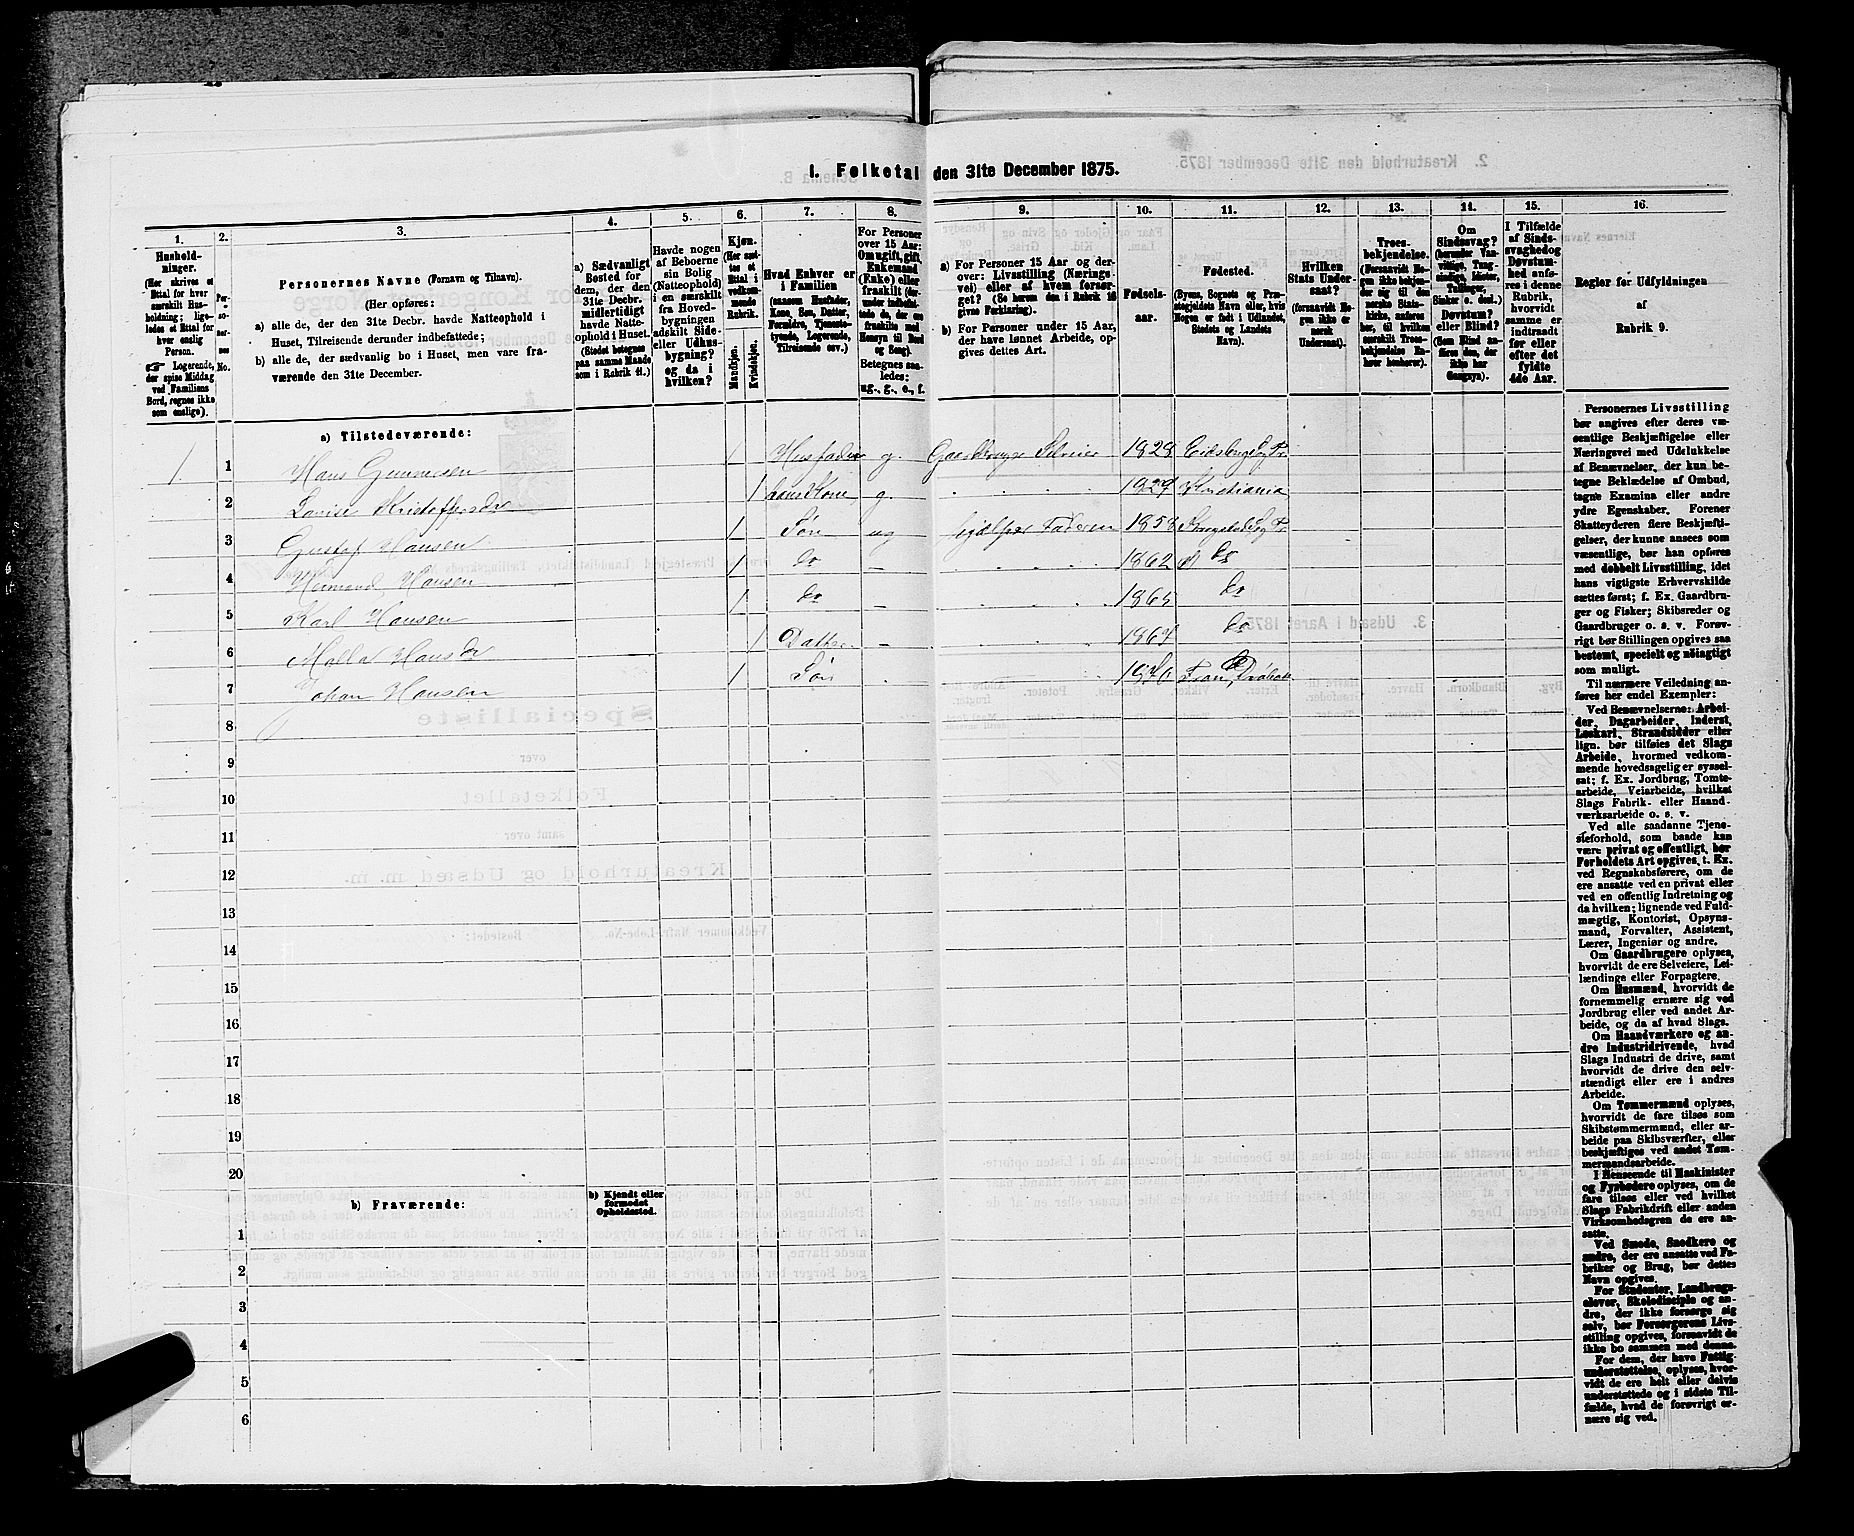 1. Folketal den 31te December 1875.
1. 2. 3. 4. 5. 6. 7. 8. 9. 10. 11. 12. 13. 14. 15. 16.
Hushold-
ninger.
(Her skrives et
Ettal for hver
særskilt Hus-
holdning; lige-
ledes et Ettal for
hver enslig
Person.
☞ Logerende,
der spise Middag
ved Familiens
Bord, regnes ikke
som enslige).
Per-
so-
ner-
nes
No.
Personernes Navne (Fornavn og Tilnavn).
(Her opføres:
a) alle de, der den 31te Decbr. havde Natteophold i
Huset, Tilreisende derunder indbefattede;
b) alle de, der sædvanlig bo i Huset, men vare fra-
værende den 31te December.
a) Sædvanligt
Bosted for
dem, der den
31te Decbr.
midlertidigt
havde Natte-
ophold i Huset.
(Stedet betegnes
paa samme Maade
som i Rubrik 11.)
Havde nogen
af Beboerne
sin Bolig
(Natteophold)
i en særskilt
fra Hoved-
bygningen
adskilt Side-
eller Udhus-
bygning?
og da i
hvilken?
Kjøn.
(Her sæt-
tes et
Ettal i
vedkom-
mende
Rubrik.
Mandkjøn.
Kvindekjøn.
Hvad Enhver er
i Familien
(saasom Husfader,
Kone, Søn, Datter,
Forældre, Tjeneste-
tyende, Logerende,
Tilreisende osv.)
For Personer
over 15 Aar:
Om ugift, gift,
Enkemand
(Enke) eller
fraskilt (der-
under indbefat-
tede de, der ere
fraskilte med
Hensyn til Bord
og Seng).
Betegnes saa-
ledes:
ug., g., e., f.
a) For Personer 15 Aar og der-
over: Livsstilling (Nærings-
vei) eller af hvem forsør-
get? (Se herom den i Rubrik 16
givne Forklaring).
b) For Personer under 15 Aar,
der have lønnet Arbeide, op-
gives dettes Art.
Fødsels-
aar.
Fødested.
(Byens, Sognets og Præ-
stegjeldets Navn eller, hvis
Nogen er født i Udlandet,
Stedets og Landets
Navn).
Hvilken
Stats Under-
saat?
(forsaavidt No-
gen ikke er
norsk
Undersaat).
Troes-
bekjendelse.
(Forsaavidt No-
gen ikke beken-
der sig til den
norske Stats-
kirke, anføres
her, til hvilken
særskilt Troes-
bekjendelse En-
hver henhører).
Om
Sindssvag?
(herunder Van-
vittige, Tung-
sindige, Idioter,
Sinker o. desl.)
Døvstum?
eller Blind?
(Som Blind an-
føres den, der
ikke har
Gangsyn).
I Tilfælde
af Sinds-
svaghed og
Døvstum-
hed anfø-
res i denne
Rubrik,
hvorvidt
samme er
indtraadt
før eller
efter det
fyldte
4de Aar.
Regler for Udfyldningen
af
Rubrik 9.
a) Tilstedeværende:
1 1 Hans Gunnersen 1 Husfader g. Gaardbruger Selveier 1829 Eidsberg Pr
2 Lovise Kristoffersdr 1 hans Kone g. 1829 Kristiania
3 Gustaf Hansen 1 Søn ug hjælper Faderen 1858
4 Hermand Hansen 1 do 1862 do
5 Karl Hansen 1 do 1865 do
6 Malla Hansdr 1 Datter 1867 do
7 Johan Hansen 1 Søn 1870
8
9
10
11
12
13
14
15
16
17
18
19
20
b) Fraværende:
b) Kjendt eller
formodet
Opholdssted.
1
2
3
4
5
6
Personernes Livsstilling
bør angives efter deres væ-
sentlige Beskjæftigelse eller
Næringsvei med Udelukkelse
af Benævnelser, der kun be-
tegne Beklædelse af Ombud,
tagne Examina eller andre
ydre Egenskaber. Forener
Skatteyderen flere Beskjæfti-
gelser, der kunne ansees som
væsentlige, bør han opføres
med dobbelt Livsstilling, idet
hans vigtigste Erhvervskilde
sættes først; f. Ex. Gaardbru-
ger og Fisker; Skibsreder og
Gaardbruger o. s. v. Forøv-
rigt bør Stillingen opgives saa
bestemt, specielt og nøiagtigt
som muligt.
Til nærmere Veiledning an-
føres her endel Exempler:
Ved Benævnelserne: Arbei-
der, Dagarbeider, Inderst,
Løskarl, Strandsidder eller
lign. bør tilføies det Slags
Arbeide, hvormed vedkom-
mende hovedsagelig er syssel-
sat; f. Ex. Jordbrug, Tomte-
arbeide, Veiarbeide, hvilket
Slags Fabrik- eller Haand-
værksarbeide o. s. v.
Ved alle saadanne Tjene-
steforhold, som baade kan
være privat og offentligt, bør
Forholdets Art opgives, t. Ex.
ved Regnskabsførere, om de
ere ansatte ved en privat eller
ved en offentlig Indretning og
da hvilken; lignende ved Fuld-
mægtig, Kontorist, Opsyns-
mand, Forvalter, Assistent,
Lærer, Ingeniør og andre.
Om Gaardbrugere oplyses,
hvorvidt de ere Selveiere, Lei-
lændinge eller Forpagtere.
Om Husmænd, hvorvidt de
fornemmelig ernære sig ved
Jordbrug eller ved andet Ar-
beide, og da af hvad Slags.
Om Haandværkere og an-
dre Industridrivende, hvad
Slags Industri de drive, samt
hvorvidt de drive den selv-
stændigt eller ere i andres
Arbeide.
Om Tømmermænd oplyses,
hvorvidt de fare tilsøs som
Skibstømmermænd, eller ar-
beide paa Skibsværfter, eller
beskjæftiges ved andet Tøm-
mermandsarbeide.
I Henseende til Maskinister
og Fyrbødere oplyses, om de
fare tilsøs eller ved hvilket
Slags Fabrikdrift eller anden
Virksomhedsgren de ere an-
satte.
Ved Smede, Snedkere og
andre, der ere ansatte ved Fa-
briker og Brug, bør dettes
Navn opgives.
For Studenter, Landbrugs-
elever, Skoledisciple og an-
dre, der ikke forsørge sig
selv, bør Forsørgerens Livs-
stilling opgives, forsaavidt de
ikke bo sammen med denne.
For dem, der have Fattig-
understøttelse, oplyses, hvor-
vidt de ere helt eller delvis
understøttede og i sidste Til-
fælde, hvad de forøvrigt er-
nære sig ved.